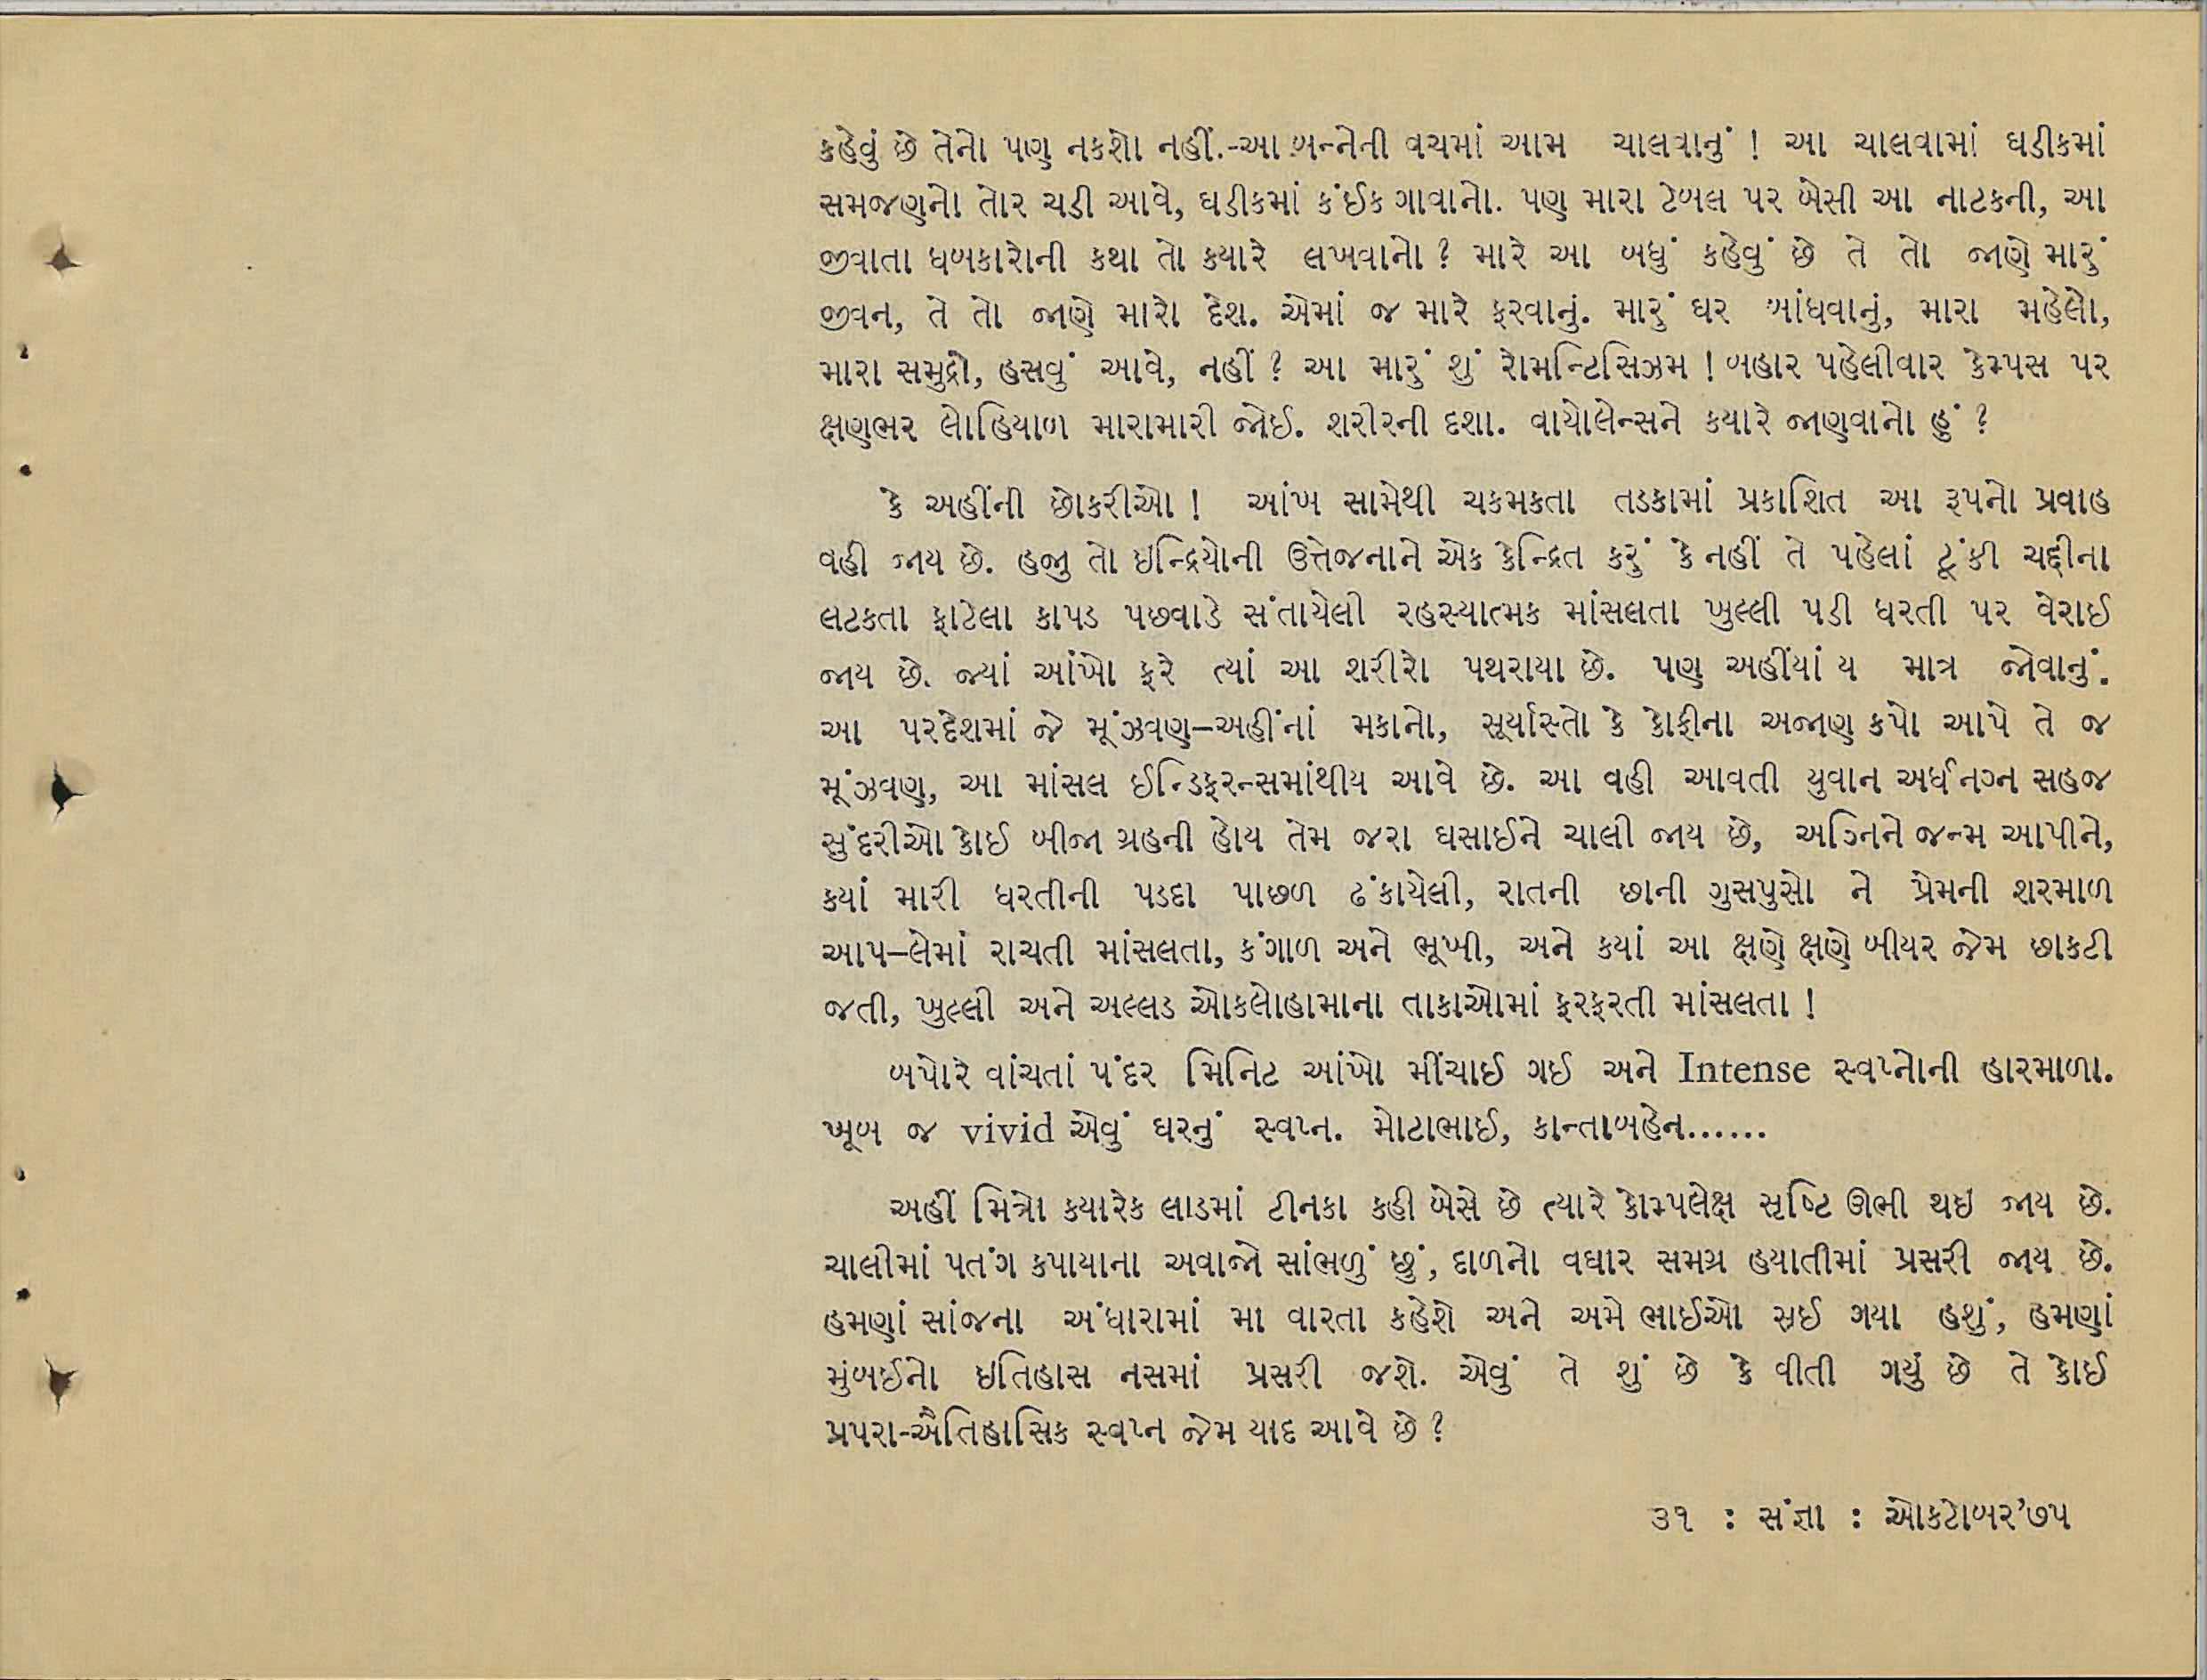 કહેવું છે તેનો પણ નકશો નહીં.-આ બન્નેની વચમાં આમ ચાલવાનું ! આ ચાલવામાં ઘડીકમાં
સમજણનો તોર ચડી આવે, ઘડીકમાં કંઈક ગાવાનો. પણ મારા ટેબલ પર બેસી આ નાટકની, આ
જીવાતા ધબકારોની કથા તો ક્યારે લખવાનો ? મારે આ બધું કહેવું છે તે તો જાણે મારું
જીવન, તે તો જાણે મારો દેશ. એમાં જ મારે ફરવાનું. મારું ઘર બાંધવાનું, મારા મહેલો,
મારા સમુદ્રો, હસવું આવે, નહીં ? આ મારું શું રોમન્ટિસિઝમ ! બહાર પહેલીવાર કેમ્પસ પર
ક્ષણભર લોહિયાળ મારામારી જોઈ. શરીરની દશા. વાયોલેન્સને ક્યારે જાણવાનો હું ?
કે અહીંની છોકરીઓ ! આંખ સામેથી ચકમકતા તડકામાં પ્રકાશિત આ રૂપનો પ્રવાહ
વહી જાય છે. હજુ તો ઇન્દ્રિયોની ઉત્તેજનાને એક કેન્દ્રિત કરું કે નહીં તે પહેલાં ટૂંકી ચઠ્ઠીના
લટકતા ફાટેલા કાપડ પછવાડે સંતાયેલી રહસ્યાત્મક માંસલતા ખુલ્લી પડી ધરતી પર વેરાઈ
જાય છે. જ્યાં આંખો ફરે ત્યાં આ શરીરો પથરાયા છે. પણ અહીંયાં ય માત્ર જોવાનું.
આ પરદેશમાં જે મૂંઝવણ–અહીંનાં મકાનો, સૂર્યાસ્તો કે કોફીના અજાણ કપો આપે તે જ
મૂંઝવણ, આ માંસલ ઈન્ડિફરન્સમાંથીય આવે છે. આ વહી આવતી યુવાન અર્ધનગ્ન સહજ
સુંદરીઓ કોઈ બીજા ગ્રહની હોય તેમ જરા ઘસાઈને ચાલી જાય છે, અગ્નિને જન્મ આપીને,
ક્યાં મારી ધરતીની પડદા પાછળ ઢંકાયેલી, રાતની છાની ગુસપુસો ને પ્રેમની શરમાળ
આપ–લેમાં રાચતી માંસલતા, કંગાળ અને ભૂખી, અને ક્યાં આ ક્ષણે ક્ષણે બીયર જેમ છાકટી
જતી, ખુલ્લી અને અલ્લડ ઓકલોહામાના તાકાઓમાં ફરફરતી માંસલતા !
બપોરે વાંચતાં પંદર મિનિટ આંખો મીંચાઈ ગઈ અને Intense સ્વપ્નોની હારમાળા.
ખૂબ જ vivid એવું ઘરનું સ્વપ્ન. મોટાભાઈ, કાન્તાબહેન......
અહીં મિત્રો ક્યારેક લાડમાં ટીનકા કહી બેસે છે ત્યારે કોમ્પલેક્ષ સૃષ્ટિ ઊભી થઇ જાય છે.
ચાલીમાં પતંગ કપાયાના અવાજો સાંભળું છું, દાળનો વઘાર સમગ્ર હયાતીમાં પ્રસરી જાય છે.
હમણાં સાંજના અંધારામાં મા વારતા કહેશે અને અમે ભાઈઓ સૂઈ ગયા હશું, હમણાં
મુંબઈનો ઇતિહાસ નસમાં પ્રસરી જશે. એવું તે શું છે કે વીતી ગયું છે તે કોઈ
પ્રપરા-ઐતિહાસિક સ્વપ્ન જેમ યાદ આવે છે ?
૩૧ : સંજ્ઞા : ઓકટોબર'૭૫